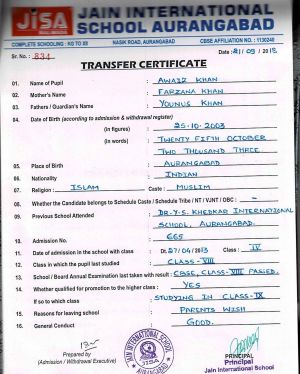 JISA
JAIN INTERNATIONAL
SCHOOL AURANGABAD
COMPLETE SCHOOLING : KG TO XII NASIK ROAD, AURANGABAD CBSE AFFILIATION NO. : 1130240
Sr. No. : 834 Date : 21 / 09 / 2018
TRANSFER CERTIFICATE
01. Name of Pupil : AWAIZ KHAN
02. Mother's Name : FARZANA KHAN
03. Fathers / Guardian's Name : YOUNUS KHAN
04. Date of Birth (according to admission & withdrawal register)
(in figures) : 25-10-2003
(in words) : TWENTY FIFTH OCTOBER
TWO THOUSAND THREE
05. Place of Birth : AURANGABAD
06. Nationality : INDIAN
07. Religion : ISLAM Caste : MUSLIM
08. Whether the Candidate belongs to Schedule Caste / Schedule Tribe / NT / VJNT / OBC : –
09. Previous School Attended : DR-Y-S. KHEDKAR INTERNATIONAL
SCHOOL, AURANGABAD.
10. Admission No. : 665
11. Date of admission in the school with class : Dt. 27/04/2013 Class : IV
12. Class in which the pupil last studied : CLASS-VIII
13. School / Board Annual Examination last taken with result : CBSE, CLASS-VIII PASSED.
14. Whether qualified for promotion to the higher class : YES
If so to which class : STUDYING IN CLASS-IX
15. Reasons for leaving school : PARENTS WISH
16. General Conduct : GOOD.
Prepared by
(Admission / Withdrawal Executive)
JAIN INTERNATIONAL SCHOOL
PRINCIPAL
Principal
Jain International School